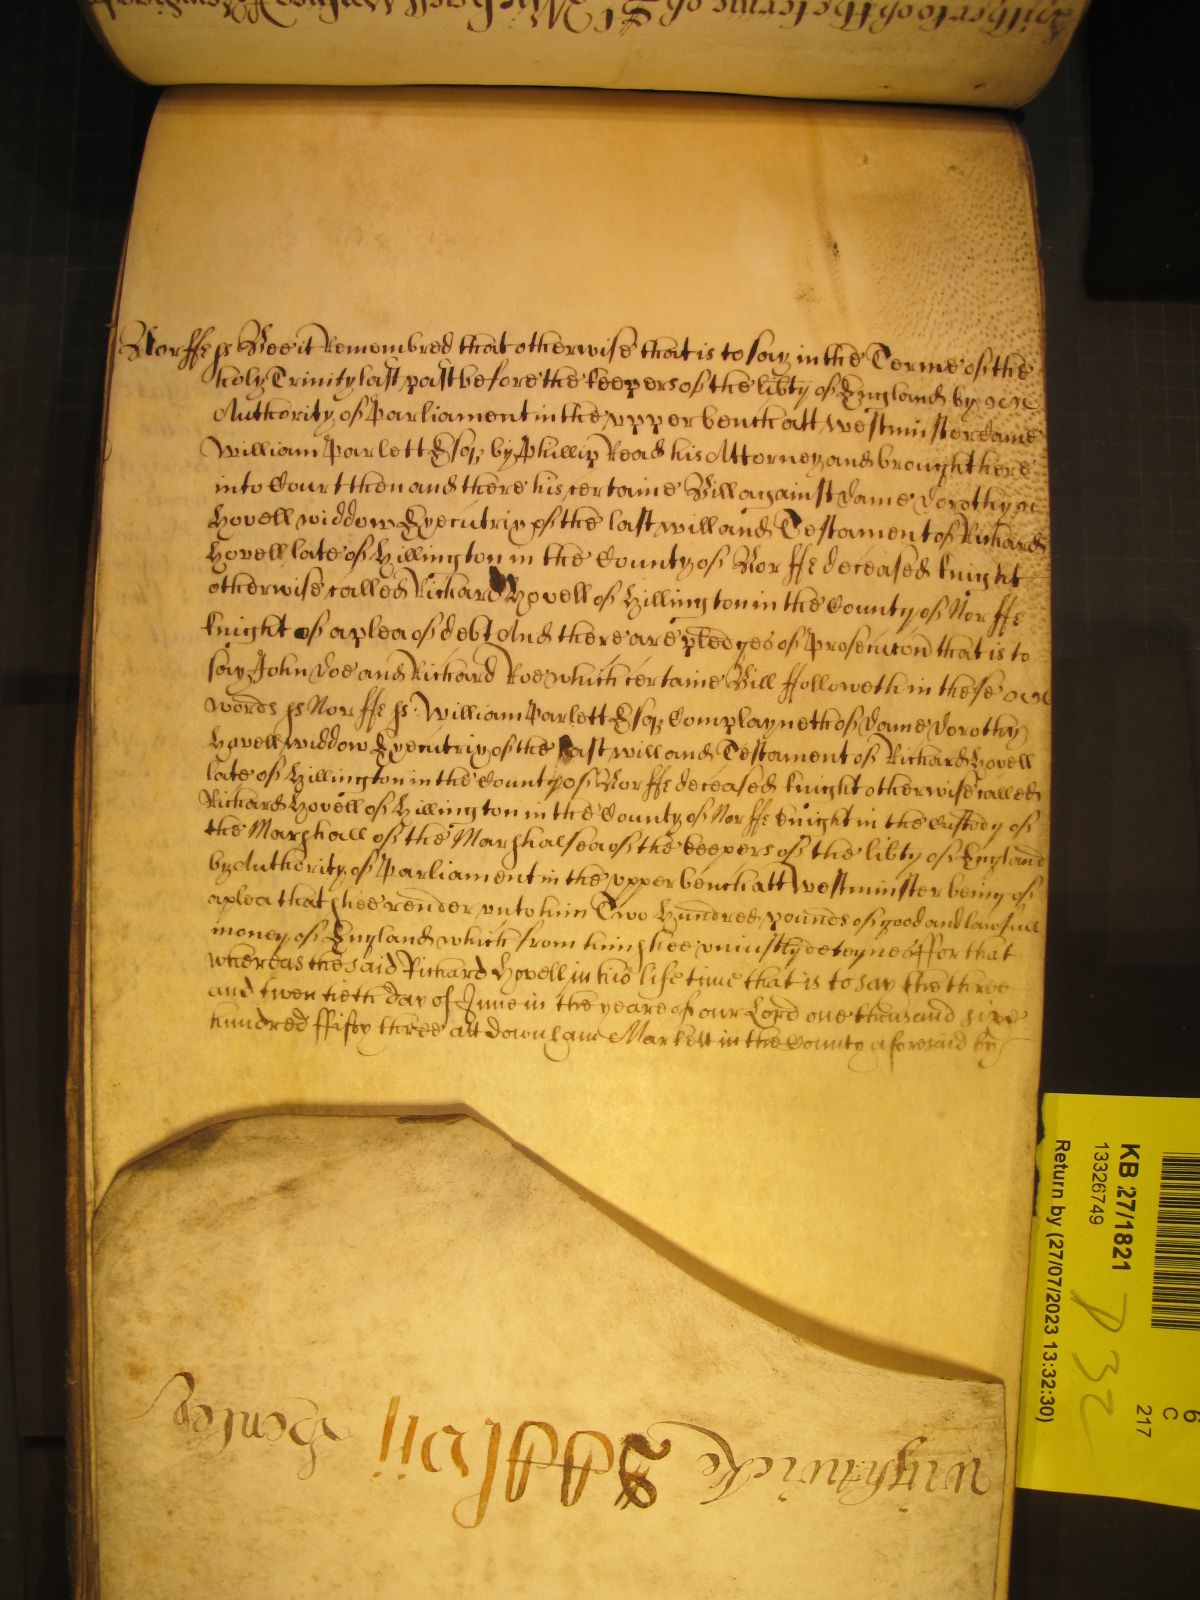 Norffe ss Bee it Remembred that otherwise that is to say in the Terme of the
holy Trinity last past before the keepers of the libty of England by
Authority of Parliament in the upper bench att Westminster came
William Parlett Esqr by Phillip Read his Attorney and brought here
into Court then and there his certaine Bill against Dame Dorothy
Hovell widdow Executrix of the last will and Testament of Richard
Hovell late of Hillington in the County of Norffe deceased knight
otherwise called Richard Hovell of Hillington in the County of Norffe
knight of a plea of debt And there are pledges of prosecucon that is to
say John Doe and Richard Roe which certaine Bill ffolloweth in these
words ss Norffe ss. William Parlett Esqr Complayneth of Dame Dorothy
Hovell widdow Executrix of the last will and Testament of Richard Hovell
late of Hillington in the County of Norffe deceased knight otherwise called
Richard Hovell of Hillington in the County of Norffe knight in the custody of
the Marshall of the Marshalsea of the keepers of the libty of England
by Authority of Parliament in the upper bench att Westminster being of
a plea that shee render unto him Two Hundred pounds of good and lawfull
money of England which from him shee uniustly deteynes ffor that
whereas the said Richard Hovell in his life time that is to say the three
and twentieth day of June in the yeare of our Lord one thousand sixe
hundred ffifty three att Downham Markett in the County aforesaid by
Wightwicke
Henley
KB 27/1821
13326749
Return by (27/07/2023 13:32:30)
217
C
6
P 32